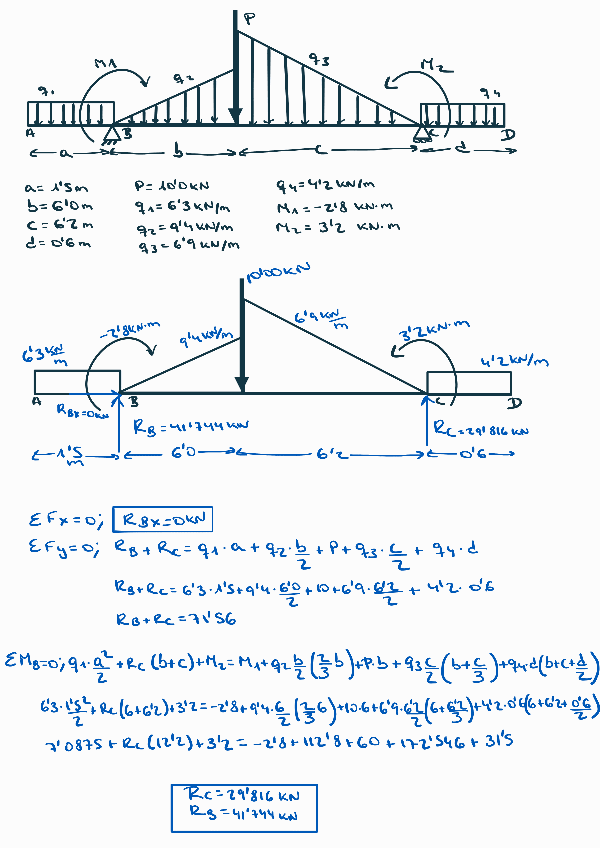 P
M1
q1
q2
q3
M2
q4
A
B
C
D
a
b
c
d
a = 1'5 m
P = 10'0 KN
q4 = 4'2 KN/m
b = 6'0 m
q1 = 6'3 KN/m
M1 = -2'8 KN·m
c = 6'2 m
q2 = 9'4 KN/m
M2 = 3'2 KN·m
d = 0'6 m
q3 = 6'9 KN/m
10'00 KN
-2'8 KN·m
6'9 KN/m
3'2 KN·m
6'3 KN/m
9'4 KN/m
4'2 KN/m
A
B
C
D
RBx=0KN
RB = 41'744 KN
RC = 29'816 KN
1'5 m
6'0
6'2
0'6
ΣFx=0; RBx=0KN
ΣFy=0; RB + RC = q1·a + q2·b/2 + P + q3·c/2 + q4·d
RB+RC = 6'3·1'5 + 9'4·6'0/2 + 10 + 6'9·6'2/2 + 4'2·0'6
RB + RC = 71'56
ΣMB=0; q1·a²/2 + RC (b+c) + M2 = M1 + q2 b/2 (2/3 b) + P·b + q3 c/2 (b + c/3) + q4·d (b+c+d/2)
6'3·1'5²/2 + RC (6+6'2) + 3'2 = -2'8 + 9'4·6/2 (2/3 6) + 10·6 + 6'9·6'2/2 (6+6'2/3) + 4'2·0'6 (6+6'2+0'6/2)
7'0875 + RC (12'2) + 3'2 = -2'8 + 112'8 + 60 + 172'546 + 31'5
RC = 29'816 KN
RB = 41'744 KN